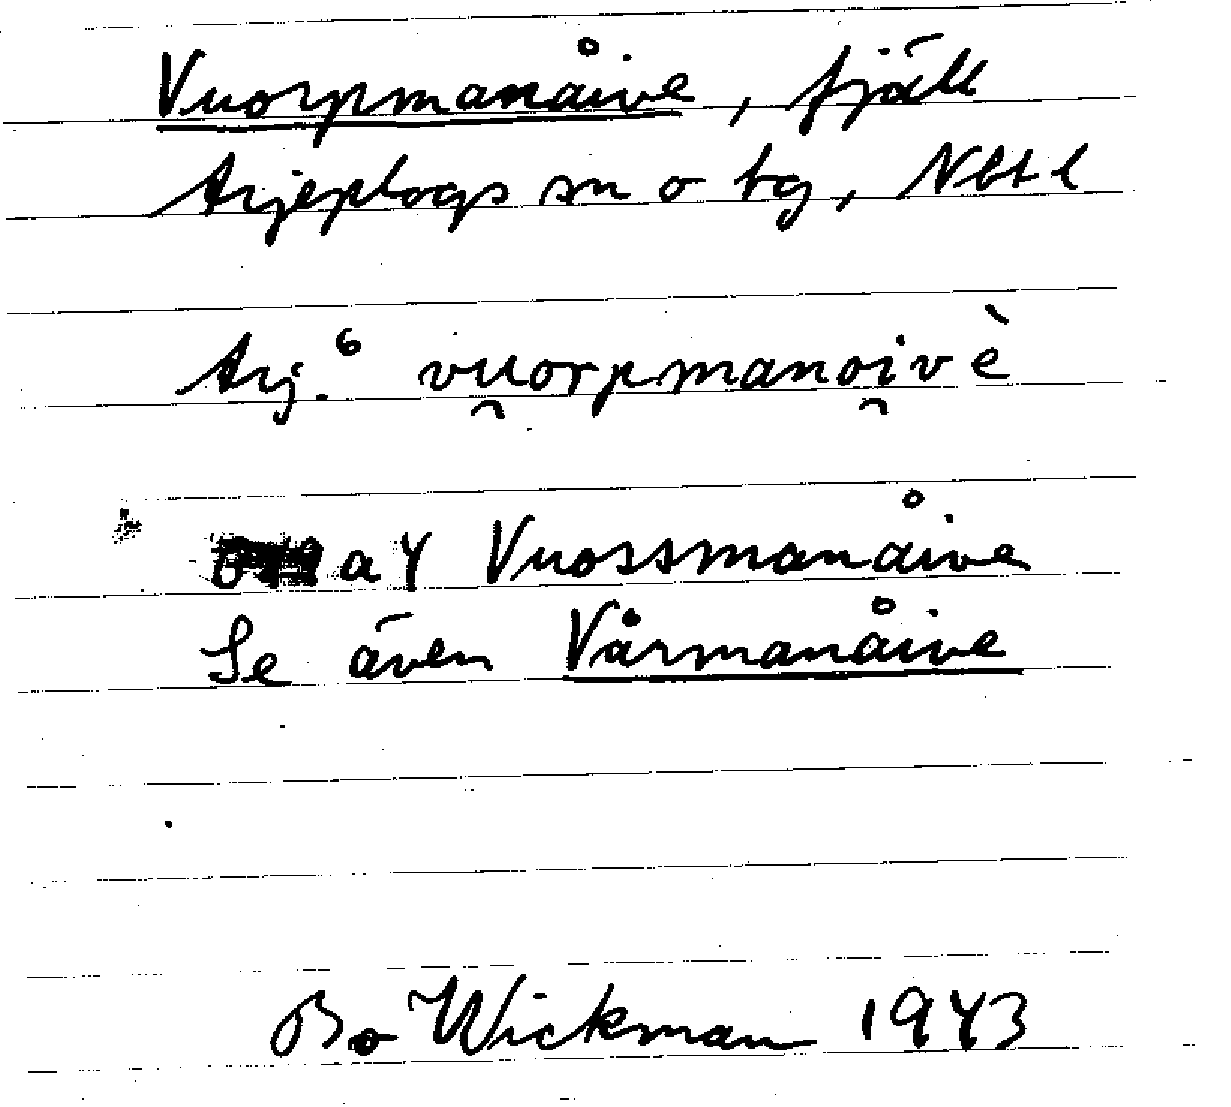 Vuorpmanåive, fjäll
Arjeplogs sn o tg, Nbtl
Arj.⁶ vu̯orpmanoi̯vè
a4 Vuossmanåive
Se även Vårmanåive
Bo Wickman 1943